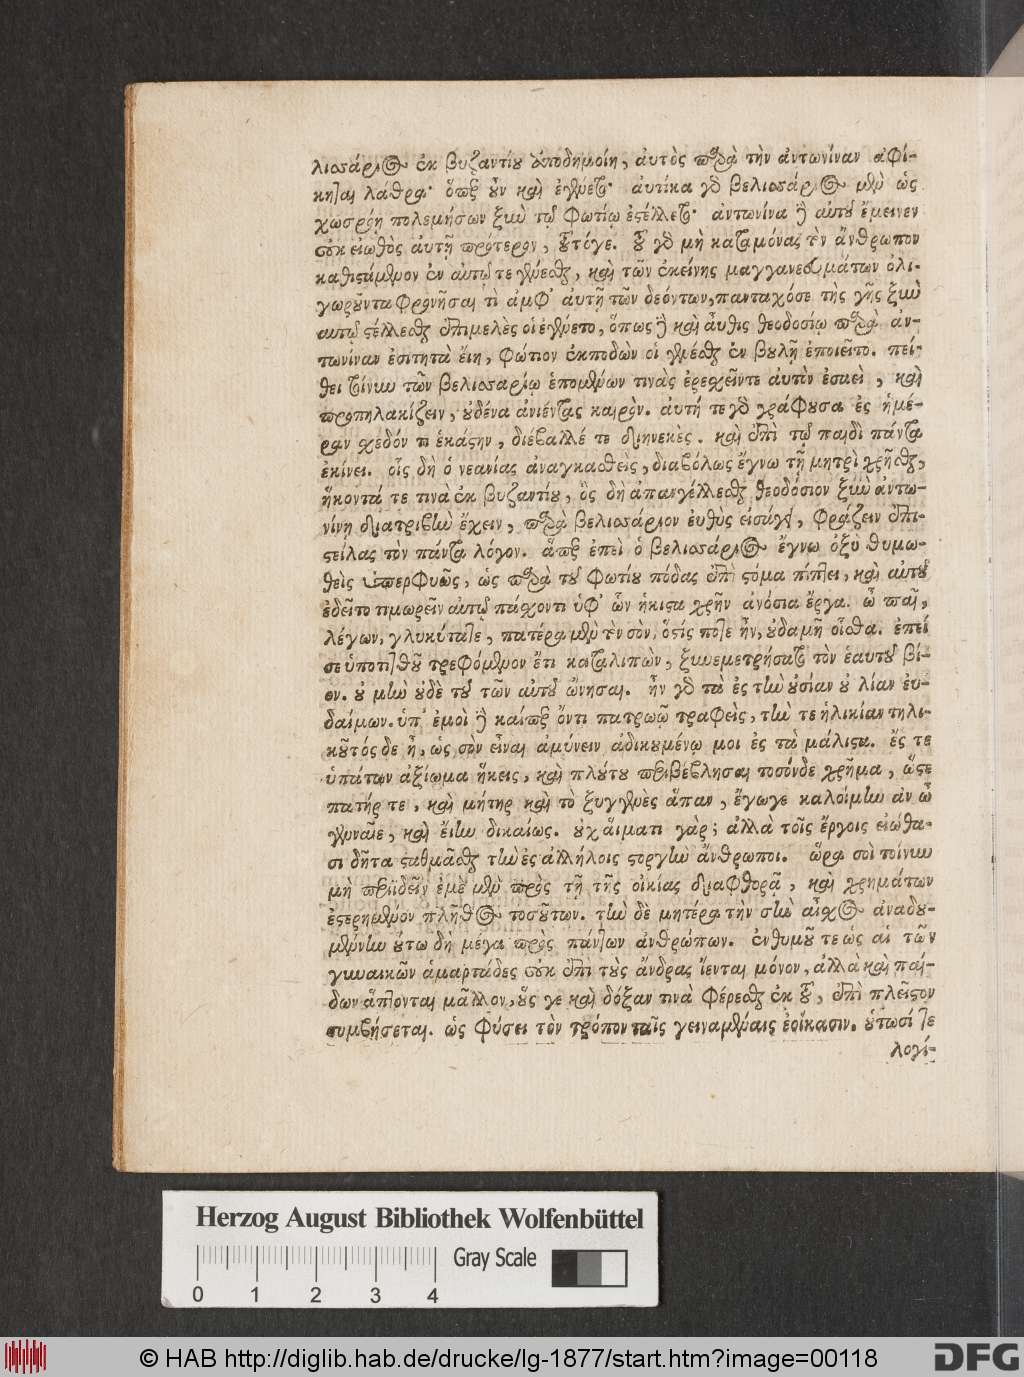 λισάριος ἐκ βυζαντίου ἀποδημοίη, ἀυτὸς παρὰ τὴν ἀντωνίναν ἀφί-
κηται λάθρα· ὅπερ οὖν καὶ ἐγένετο· ἀυτίκα γὰρ βελισάριος μὲν ὡς
χωσρόη πολεμήσων ξὺν τῷ φωτίῳ ἐστέλλετο· ἀντωνίνα δὲ αὐτοῦ ἔμεινεν
οὐκ εἰωθὸς ἀυτῇ πρότερον, τούτόγε. τοῦ γὰρ μὴ καταμόνας τὸν ἄνθρωπον
καθιστάμενον ἐν αὑτῷ τε γενέσθαι, καὶ τῶν ἐκείνης μαγγανευμάτων ὀλι-
γωροῦντα φρονῆσαι τὶ ἀμφ' ἀυτῇ τῶν δεόντων, πανταχόσε τῆς γῆς ξὺν
αυτῷ στέλλεσθαι ἐπιμελὲς οἱ ἐγένετο, ὅπως δὲ καὶ αὖθις θεοδοσίῳ παρὰ ἀν-
τωνίναν ἐσιτητὰ ἔιη, φώτιον ἐκποδὼν οἱ γενέσθαι ἐν βουλῇ ἐποιεῖτο. πεί-
θει τοίνυν τῶν βελισαρίῳ ἑπομένων τινὰς ἐρεχεῖντε αυτὸν ἐσαεὶ, καὶ
προπηλακίζειν, οὐδένα ἀνιέντας καιρὸν. ἀυτή τε γὰρ γράφουσα ἐς ἡμέ-
ραν σχεδόν τι ἑκάστην, διέβαλλέ τε διηνεκὲς. καὶ ἐπὶ τῷ παιδὶ πάντα
ἐκίνει. οἷς δὴ ὁ νεανίας ἀναγκασθεὶς, διαβόλως ἔγνω τῇ μητρὶ χρῆσθαι,
ἥκοντά τε τινὰ ἐκ βυζαντίου, ὃς δὴ ἀπαγγέλλεσθαι θεοδόσιον ξὺν ἀντω-
νίνῃ διατριβὴν ἔχειν, παρὰ βελισάριον ἐυθὺς εἰσάγει, φράζειν ἐπι-
στείλας τὸν πάντα λόγον. ἅπερ ἐπεὶ ὁ βελισάριος ἔγνω ὀξὺ θυμω-
θεὶς ὑπερφυῶς, ὡς παρὰ τοῦ φωτίου πόδας ἐπὶ στόμα πίπτει, καὶ αὐτοῦ
ἐδεῖτο τιμωρεῖν αυτῷ πάσχοντι ὑφ' ὧν ἥκιστα χρῆν ἀνόσια ἔργα. ὦ παῖ,
λέγων, γλυκύτατε, πατέρα μὲν τὸν σὸν, ὅστίς ποτε ἦν, οὐδαμῆ οἶσθα. ἐπεί
σε ὑποτιτθοῦ τρεφόμενον ἔτι καταλιπὼν, ξυνεμετρήσατο τὸν ἑαυτοῦ βί-
ον. οὐ μὴν οὐδὲ του τῶν αὐτοῦ ὤνησαι. ἦν γὰρ τὰ ἐς τὴν οὐσίαν οὐ λίαν ἐυ-
δαίμων. ὑπ' ἐμοὶ δὲ καίπερ ὄντι πατρωῷ τραφεὶς, τὴν τε ἡλικίαν τηλι-
κοῦτός δε ἦ, ὡς σὸν εἶναι ἀμύνειν ἀδικουμένῳ μοι ἐς τὰ μάλιστα. ἔς τε
ὑπάτων ἀξίωμα ἥκεις, καὶ πλούτου περιβέβλησαι τοσόνδε χρῆμα, ὥστε
πατήρ τε, καὶ μήτηρ καὶ τὸ ξυγγενὲς ἅπαν, ἔγωγε καλοίμην ἀν ὦ
γενναῖε, καὶ ἔιην δικαίως. οὐχἅιματι γὰρ; ἀλλὰ τοῖς ἔργοις εἰώθα-
σι δῆτα σταθμᾶσθαι τὴν ἐς ἀλλήλοις στοργὴν ἄνθρωποι. ὥρα σοὶ τοίνυν
μὴ περιϊδεῖν ἐμὲ μὲν πρὸς τῇ τῆς οἰκίας διαφθορᾷ, καὶ χρημάτων
ἐστερημένον πλῆθος τοσοῦτων. τὴν δὲ μητέρα τὴν σὴν αἶσχος ἀναδου-
μένην οὑτω δὴ μέγα πρὸς πάντων ἀνθρώπων. ἐνθυμοῦ τε ὡς αἱ τῶν
γυναικῶν ἁμαρτάδες οὐκ ἐπὶ τοὺς ἄνδρας ἵενται μόνον, ἀλλὰ καὶ παί-
δων ἅπτονται μᾶλλον, οὕς γε καὶ δόξαν τινὰ φέρεσθαι ἐκ τοῦ, ἐπὶ πλεῖστον
συμβήσεται. ὡς φύσει τὸν τρόπον ταῖς γειναμέναις ἐοίκασιν. οὑτωσί τε
λογί-
Herzog August Bibliothek Wolfenbüttel
Gray Scale
0 1 2 3 4
© HAB http://diglib.hab.de/drucke/lg-1877/start.htm?image=00118
DFG